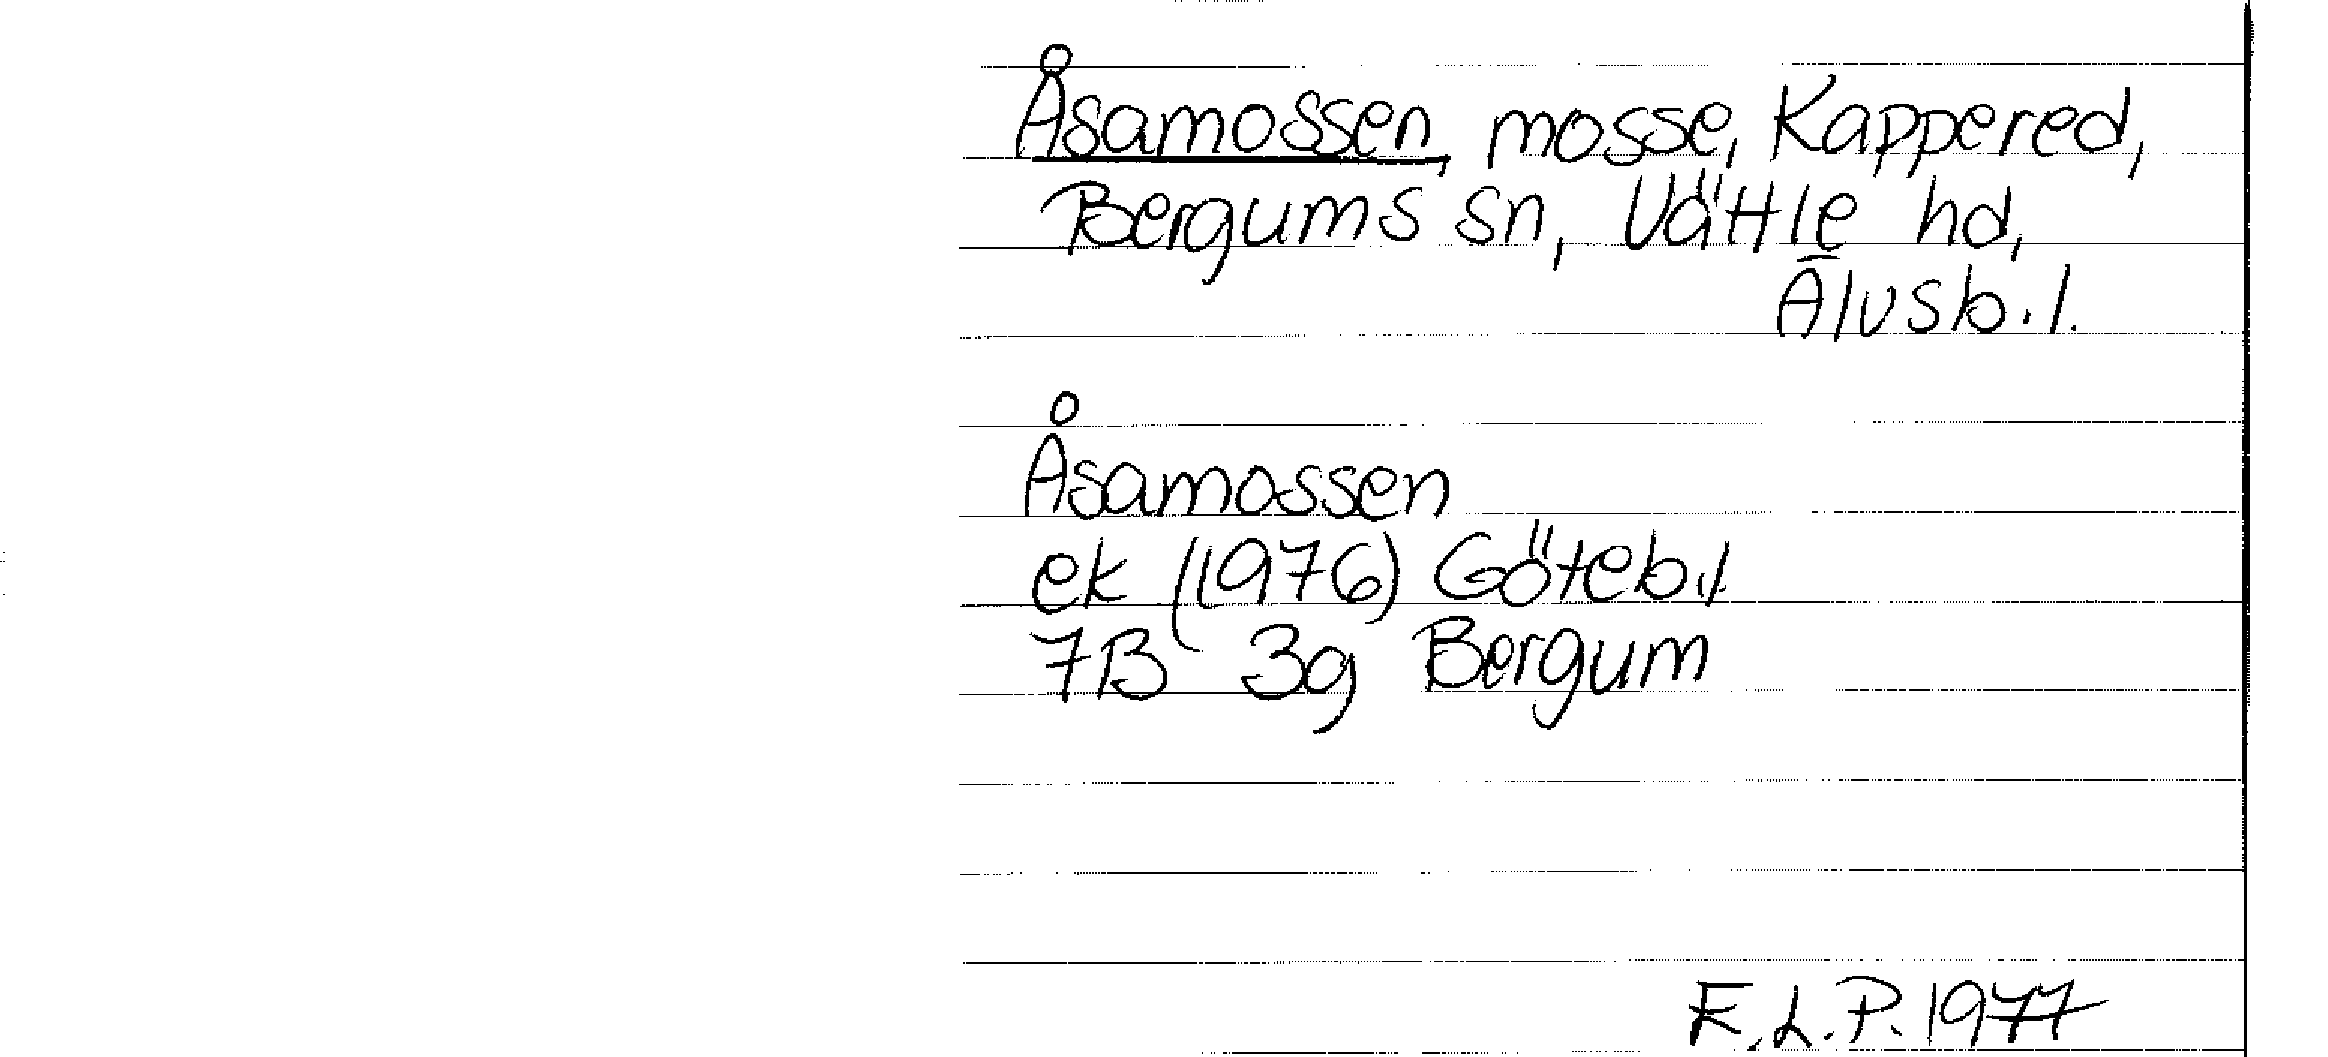 Åsamossen, mosse, Kappered,
Bergums sn, Vättle hd,
Älvsb.l.
Åsamossen
ek (1976) Göteb.l
7B 3g Bergum
E.L.P. 1977